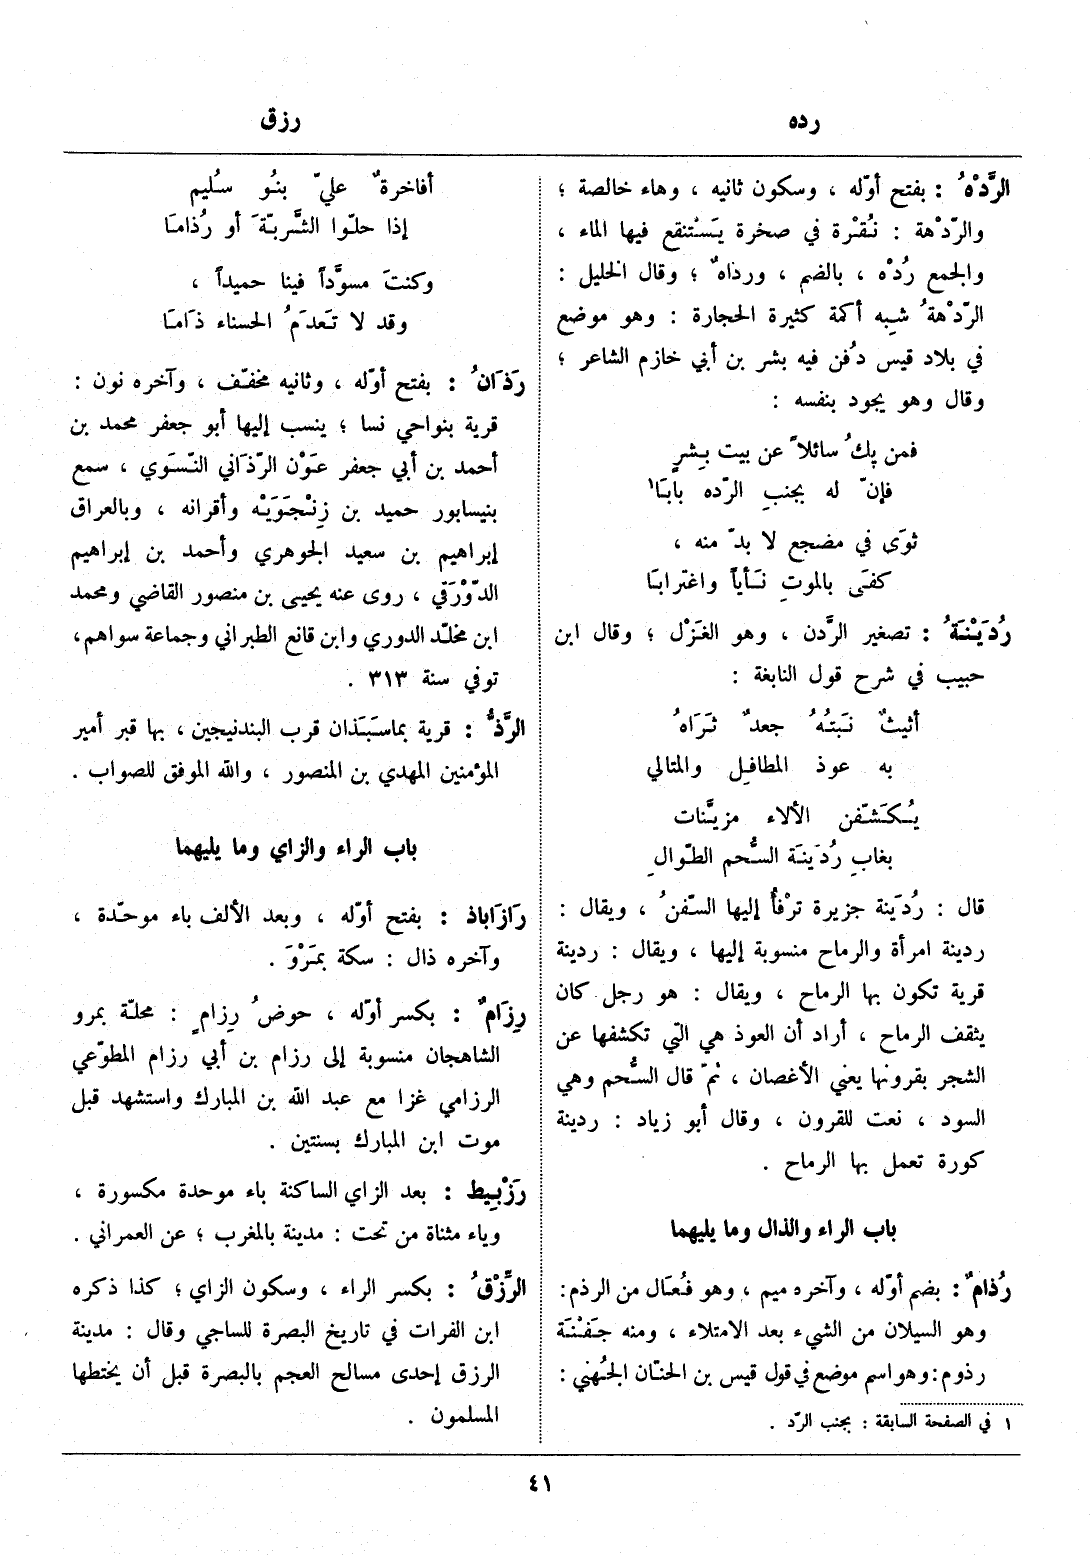 رده
رزق
الرَّدْهُ : بفتح أوّله ، وسكون ثانيه ، وهاء خالصة ؛
والرّدْهة : نُقْرة في صخرة يَسْتنقع فيها الماء ،
والجمع رُدْه ، بالضم ، ورداهٌ ؛ وقال الخليل :
الرّدْهةُ شبِه أكمة كثيرة الحجارة : وهو موضع
في بلاد قيس دُفن فيه بشر بن أبي خازم الشاعر ؛
وقال وهو يجود بنفسه :
فمن يكُ سائلاً عن بيت بِشرٍ
فإنّ له بجنبِ الرّده بابَا١
ثوَى في مضجع لا بدّ منه ،
كفَى بالموتِ نَأياً واغترابَا
رُدَيْنَةُ : تصغير الرَّدن ، وهو الغَزْل ؛ وقال ابن
حبيب في شرح قول النابغة :
أثيثٌ نَبتُهُ جعدٌ ثَرَاهُ
به عوذ المطافِل والمتالي
يُكَشّفن الألاء مزيَّنات
بغابِ رُدَينَة السُّحم الطّوالِ
قال : رُدَينة جزيرة ترْفأ إليها السّفنُ ، ويقال :
ردينة امرأة والرماح منسوبة إليها ، ويقال : ردينة
قرية تكون بها الرماح ، ويقال : هو رجل كان
يثقف الرماح ، أراد أن العوذ هي التي تكشفها عن
الشجر بقرونها يعني الأغصان ، ثمّ قال السُّحم وهي
السود ، نعت للقرون ، وقال أبو زياد : ردينة
كورة تعمل بها الرماح .
باب الراء والذال وما يليهما
رُذامٌ : بضم أوّله ، وآخره ميم ، وهو فُعَال من الرذم:
وهو السيلان من الشيء بعد الامتلاء ، ومنه جَفْنَة
رذوم: وهو اسم موضع في قول قيس بن الحنّان الجُهني :
١ في الصفحة السابقة : بجنب الرّد .
أفاخرةٌ عليّ بنُو سُليم
إذا حلّوا الشَّربّةَ أو رُذامَا
وكنتَ مسوَّداً فينا حميداً ،
وقد لا تَعدَمُ الحسناء ذَامَا
رَذَانُ : بفتح أوّله ، وثانيه مخفّف ، وآخره نون :
قرية بنواحي نسا ؛ ينسب إليها أبو جعفر محمد بن
أحمد بن أبي جعفر عَوْن الرّذاني النّسَوي ، سمع
بنيسابور حميد بن زِنْجَوَيْه وأقرانه ، وبالعراق
إبراهيم بن سعيد الجوهري وأحمد بن إبراهيم
الدّوْرَقي ، روى عنه يحيى بن منصور القاضي ومحمد
ابن مخلّد الدوري وابن قانع الطبراني وجماعة سواهم،
توفي سنة ٣١٣ .
الرَّذُّ : قرية بماسَبَذان قرب البندنيجين ، بها قبر أمير
المؤمنين المهدي بن المنصور ، والله الموفق للصواب .
باب الراء والزاي وما يليهما
رَازَاباذ : بفتح أوّله ، وبعد الألف باء موحّدة ،
وآخره ذال : سكة بمَرْوَ .
رِزَامٌ : بكسر أوّله ، حوضُ رِزام : محلّة بمرو
الشاهجان منسوبة إلى رزام بن أبي رزام المطوّعي
الرزامي غزا مع عبد الله بن المبارك واستشهد قبل
موت ابن المبارك بسنتين .
رَزْبِيط : بعد الزاي الساكنة باء موحدة مكسورة ،
وياء مثناة من تحت : مدينة بالمغرب ؛ عن العمراني .
الرِّزْقُ : بكسر الراء ، وسكون الزاي ؛ كذا ذكره
ابن الفرات في تاريخ البصرة للساجي وقال : مدينة
الرزق إحدى مسالح العجم بالبصرة قبل أن يختطها
المسلمون .
٤١